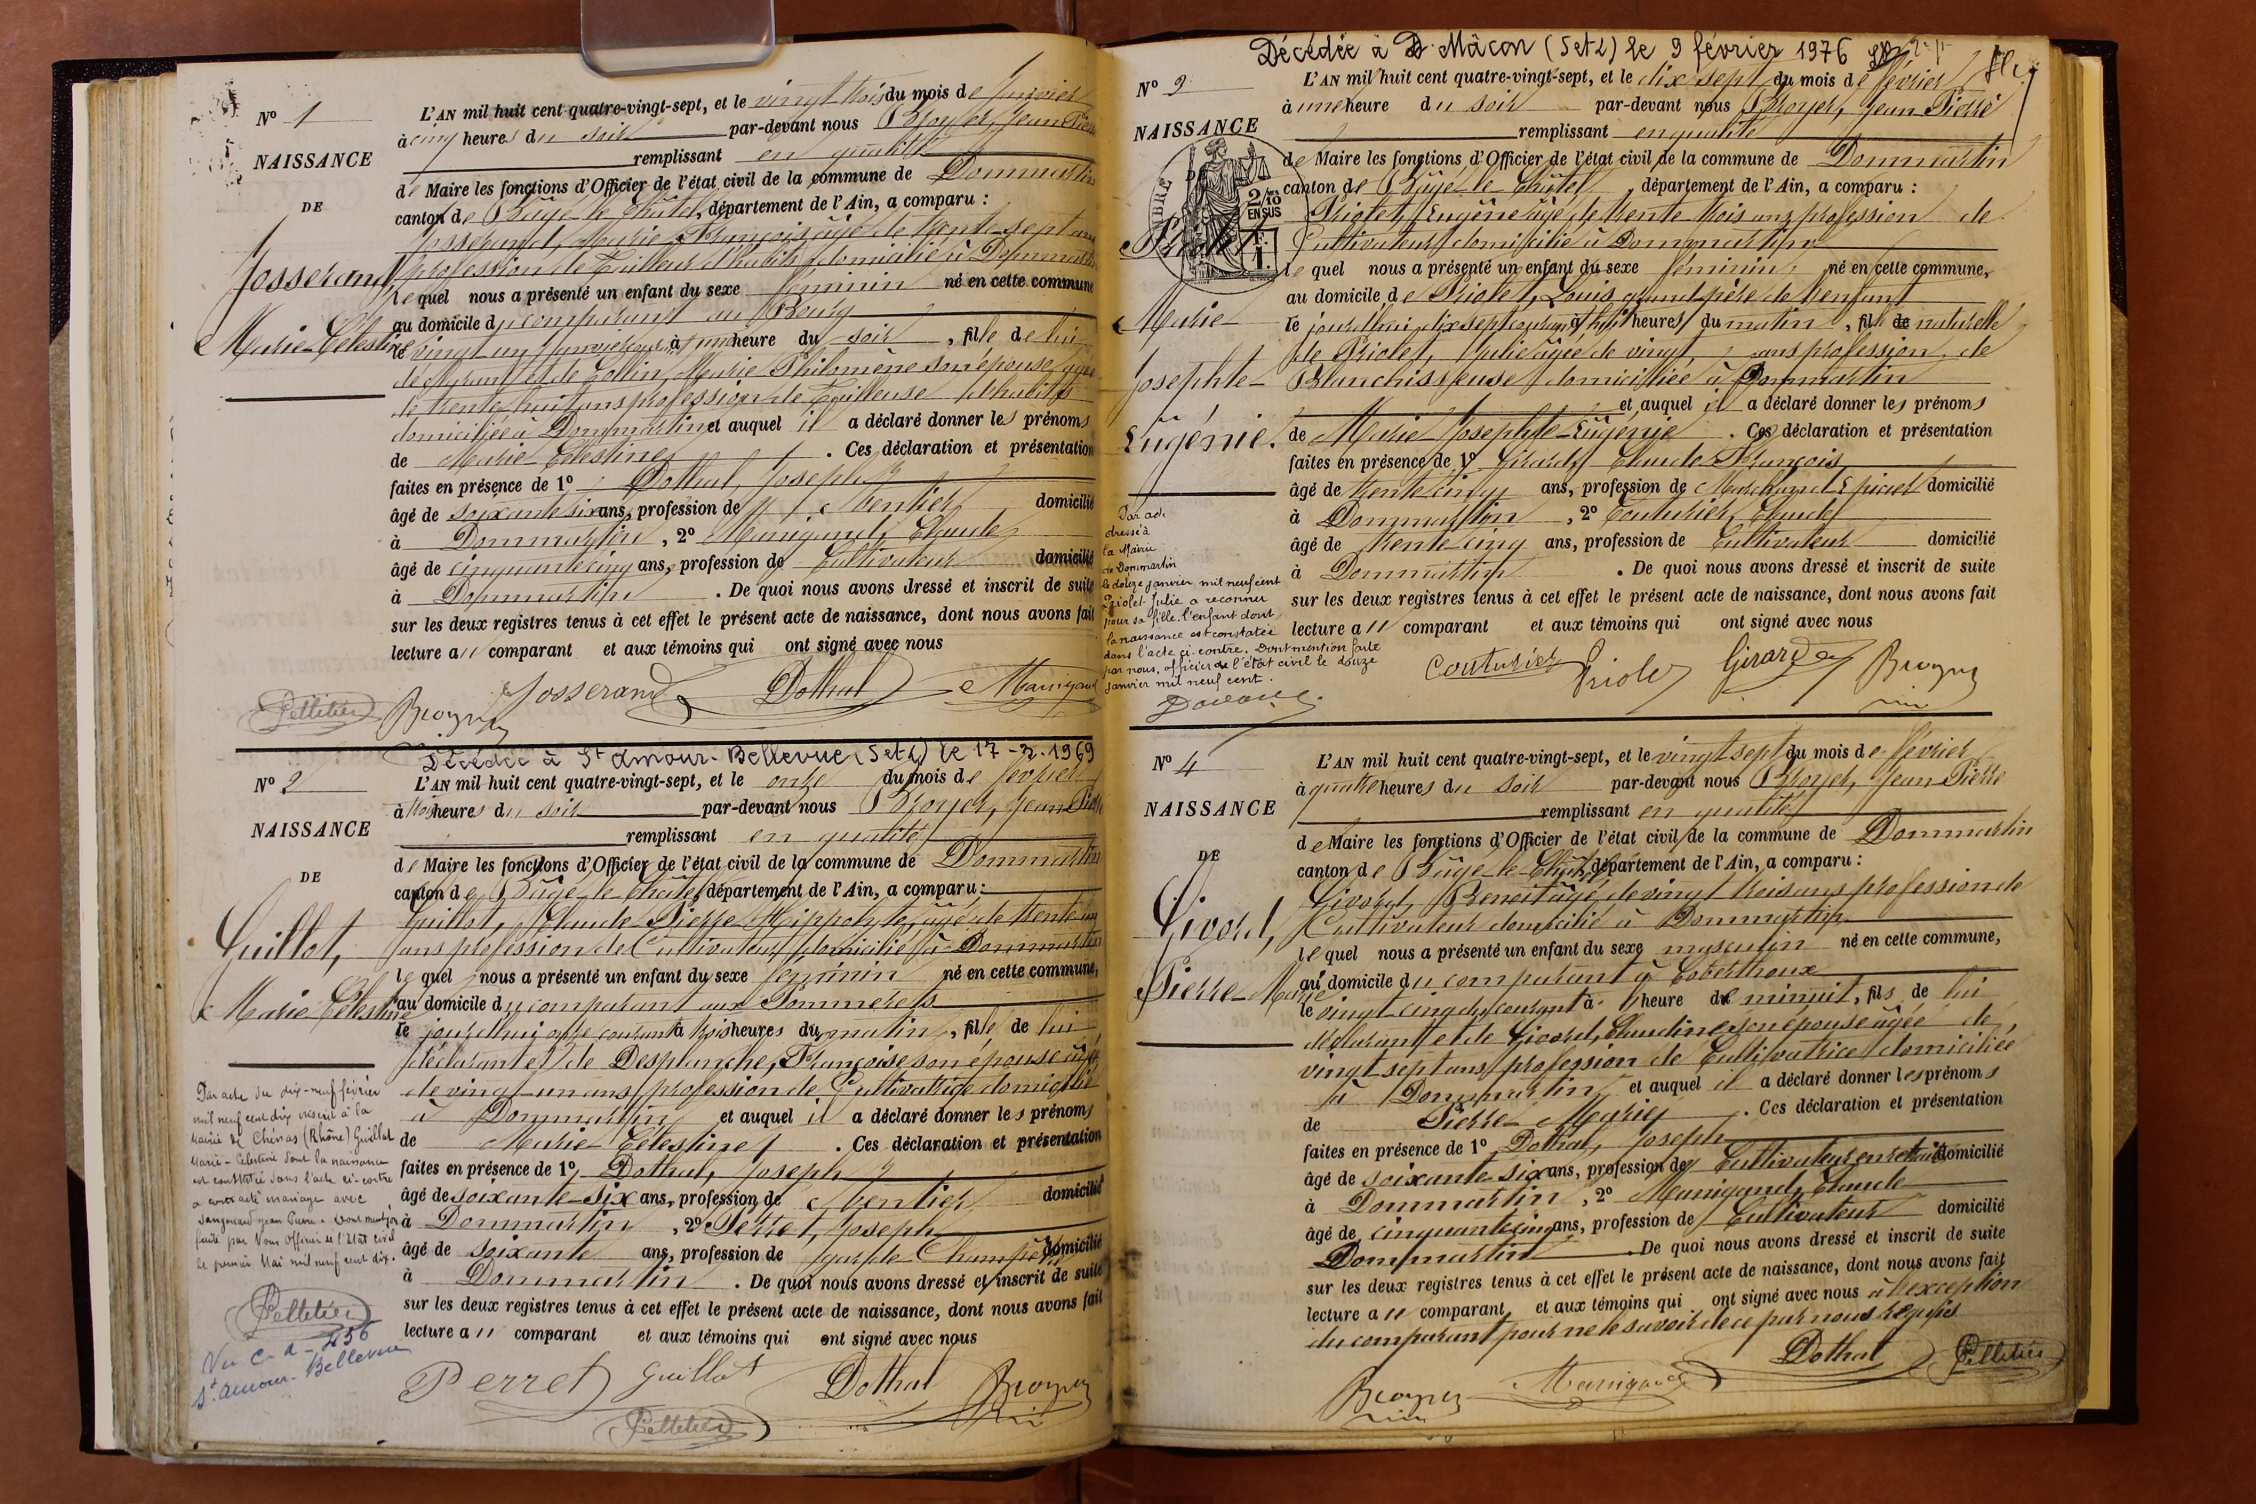 N° 1
NAISSANCE
DE
Josserand,
Marie Célestine
L'AN mil huit cent quatre-vingt-sept, et le vingt trois du mois de janvier
à cinq heures du soir par-devant nous Broyer, Jean Pierre
remplissant en qualité
de Maire les fonctions d'Officier de l'état civil de la commune de Dommartin
canton de Bâgé-le-Châtel, département de l'Ain, a comparu :
Josserand, Marie François âgé de trente-sept ans
profession de Tailleur d'habits domicilié à Dommartin
lequel nous a présenté un enfant du sexe féminin né en cette commune
au domicile du comparant au Bourg
le vingt un janvier à une heure du soir, fille de lui
déclarant et de Collin, Marie Philomène son épouse, âgée
de trente huit ans profession de Tailleuse d'habits
domiciliée à Dommartin et auquel il a déclaré donner les prénoms
de Marie Célestine. Ces déclaration et présentation
faites en présence de 1° Dothal, Joseph
âgé de soixante six ans, profession de Rentier domicilié
à Dommartin, 2° Manigand, Claude
âgé de cinquante cinq ans, profession de Cultivateur domicilié
à Dommartin. De quoi nous avons dressé et inscrit de suite
sur les deux registres tenus à cet effet le présent acte de naissance, dont nous avons fait
lecture au comparant et aux témoins qui ont signé avec nous
Pelletier Broyer Josserand Dothal Manigand
Décédée à St Amour-Bellevue (S et L) le 17-3-1969
N° 2
NAISSANCE
DE
Guillot,
Marie Célestine
L'AN mil huit cent quatre-vingt-sept, et le onze du mois de février
à trois heures du soir par-devant nous Broyer, Jean Pierre
remplissant en qualité
de Maire les fonctions d'Officier de l'état civil de la commune de Dommartin
canton de Bâgé-le-Châtel, département de l'Ain, a comparu :
Guillot, Claude Pierre Hippolyte, âgé de trente un
ans profession de Cultivateur domicilié à Dommartin
lequel nous a présenté un enfant du sexe féminin né en cette commune,
au domicile du comparant aux Pommerets
le jourd'hui onze courant à trois heures du matin, fille de lui
déclarant et de Desplanche, Françoise son épouse âgée
de vingt-un ans profession de Cultivatrice domiciliée
à Dommartin et auquel il a déclaré donner les prénoms
de Marie Célestine. Ces déclaration et présentation
faites en présence de 1° Dothal, Joseph
âgé de soixante-six ans, profession de Rentier domicilié
à Dommartin, 2° Perret, Joseph
âgé de soixante ans, profession de garde Champêtre domicilié
à Dommartin. De quoi nous avons dressé et inscrit de suite
sur les deux registres tenus à cet effet le présent acte de naissance, dont nous avons fait
lecture au comparant et aux témoins qui ont signé avec nous
Par acte du dix-neuf février
mil neuf cent dix inscrit à la
Mairie de Chénas (Rhône) Guillot
Marie-Célestine dont la naissance
est constatée dans l'acte ci-contre
a contracté mariage avec
Jean Pierre. Dont mention
faite par Nous Officier de l'Etat civil
le premier Mai mil neuf cent dix.
Pelletier
Vu C-d-456
St Amour-Bellevue
Perret Guillot Dothal Broyer
Pelletier
Décédée à Mâcon (S et L) le 9 février 1976
N° 3
NAISSANCE
DE
Priolet,
Marie
Josephte
Eugénie.
TIMBRE
2/10 EN SUS
1F.
L'AN mil huit cent quatre-vingt-sept, et le dix sept du mois de février
à une heure du soir par-devant nous Broyer, Jean Pierre
remplissant en qualité
de Maire les fonctions d'Officier de l'état civil de la commune de Dommartin
canton de Bâgé-le-Châtel, département de l'Ain, a comparu :
Priolet, Eugène âgé de trente-trois ans profession de
Cultivateur domicilié à Dommartin
lequel nous a présenté un enfant du sexe féminin, né en cette commune,
au domicile de Priolet, Louis, grand-père de l'enfant
le jourd'hui dix sept courant à huit heures du matin, fille de naturelle
de Priolet, Julie âgée de vingt ans profession de
Blanchisseuse domiciliée à Dommartin
et auquel il a déclaré donner les prénoms
de Marie Josephte-Eugénie. Ces déclaration et présentation
faites en présence de 1° Girard, Claude François
âgé de trente cinq ans, profession de Marchand Epicier domicilié
à Dommartin, 2° Couturier, Claude
âgé de trente cinq ans, profession de Cultivateur domicilié
à Dommartin. De quoi nous avons dressé et inscrit de suite
sur les deux registres tenus à cet effet le présent acte de naissance, dont nous avons fait
lecture au comparant et aux témoins qui ont signé avec nous
Par acte
dressé à
la Mairie
de Dommartin
le douze janvier mil neuf cent
Priolet Julie a reconnu
pour sa fille l'enfant dont
la naissance est constatée
dans l'acte ci-contre. Dont mention faite
par nous, officier de l'état civil le douze
janvier mil neuf cent.
Couturier Priolet Girard Broyer
N° 4
NAISSANCE
DE
Givord,
Pierre-Marie
L'AN mil huit cent quatre-vingt-sept, et le vingt sept du mois de février
à quatre heures du soir par-devant nous Broyer, Jean Pierre
remplissant en qualité
de Maire les fonctions d'Officier de l'état civil de la commune de Dommartin
canton de Bâgé-le-Châtel, département de l'Ain, a comparu :
Givord, Benoit âgé de vingt trois ans profession de
Cultivateur domicilié à Dommartin
lequel nous a présenté un enfant du sexe masculin né en cette commune,
au domicile du comparant à Coberthoux
le vingt cinq du courant à 1 heure de minuit, fils de lui
déclarant et de Givord, Claudine son épouse âgée de
vingt sept ans profession de Cultivatrice domiciliée
à Dommartin et auquel il a déclaré donner les prénoms
de Pierre-Marie. Ces déclaration et présentation
faites en présence de 1° Dothal, Joseph
âgé de soixante-six ans, profession de Cultivateur en retraite domicilié
à Dommartin, 2° Manigand, Claude
âgé de cinquante cinq ans, profession de Cultivateur domicilié
Dommartin. De quoi nous avons dressé et inscrit de suite
sur les deux registres tenus à cet effet le présent acte de naissance, dont nous avons fait
lecture au comparant et aux témoins qui ont signé avec nous à l'exception
du comparant pour ne le savoir de ce par nous requis
Broyer Manigand Dothal Pelletier